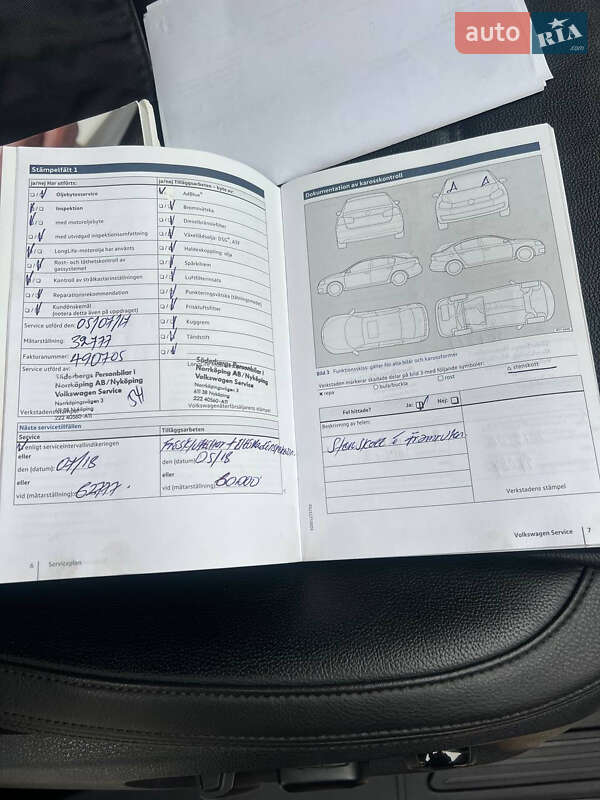 auto RIA.com
Stämpelfält 1
ja/nej Har utförts:
ja/nej Tilläggsarbeten – byte av
Oljebytesservice
Inspektion
med motoroljebyte
med utvidgad inspektionsomfattning
LongLife-motorolja har använts
Rost- och täthetskontroll av
gassystemet
Kontroll av strålkastarinställningen
Reparationsrekommendation
Kundönskemål
(notera detta även på uppdraget)
AdBlue®
Bromsvätska
Dieselbränslefilter
Växellådsolja: DSG®, ATF
Haldexkoppling: olja
Spärkilrem
Luftfilterinsats
Punkteringsvätska (tätningsmedel)
Friskluftsfilter
Kuggrem
Tändstift
Service utförd den: 05/07/17
Mätarställning: 32777
Fakturanummer: 490705
Service utförd av:
Söderbergs Personbilar i
Norrköping AB/Nyköping
Volkswagen Service
Norrköpingsvägen 3
611 38 Nyköping
222 40560-A11
Söderbergs Personbilar i
Norrköping AB/Nyköping
Volkswagen Service
Norrköpingsvägen 3
611 38 Nyköping
222 40560-A11
Volkswagenåterförsäljarens stämpel
Nästa servicetillfällen
Service
Tilläggsarbeten
enligt serviceintervallindikeringen
eller
den (datum): 07/18
eller
vid (mätarställning): 62777
den (datum): 05/18
eller
vid (mätarställning): 60.000
6 Serviceplan
Dokumentation av karosskontroll
Bild 3 Funktionsskiss: gäller för alla bilar och karossformer
Verkstaden markerar skadade delar på bild 3 med följande symboler:
× repa
○ bula/buckla
□ rost
△ stenskott
Fel hittade?
Ja:
Nej:
Beskrivning av felen:
Stenskott i framrutan
Verkstadens stämpel
Volkswagen Service 7